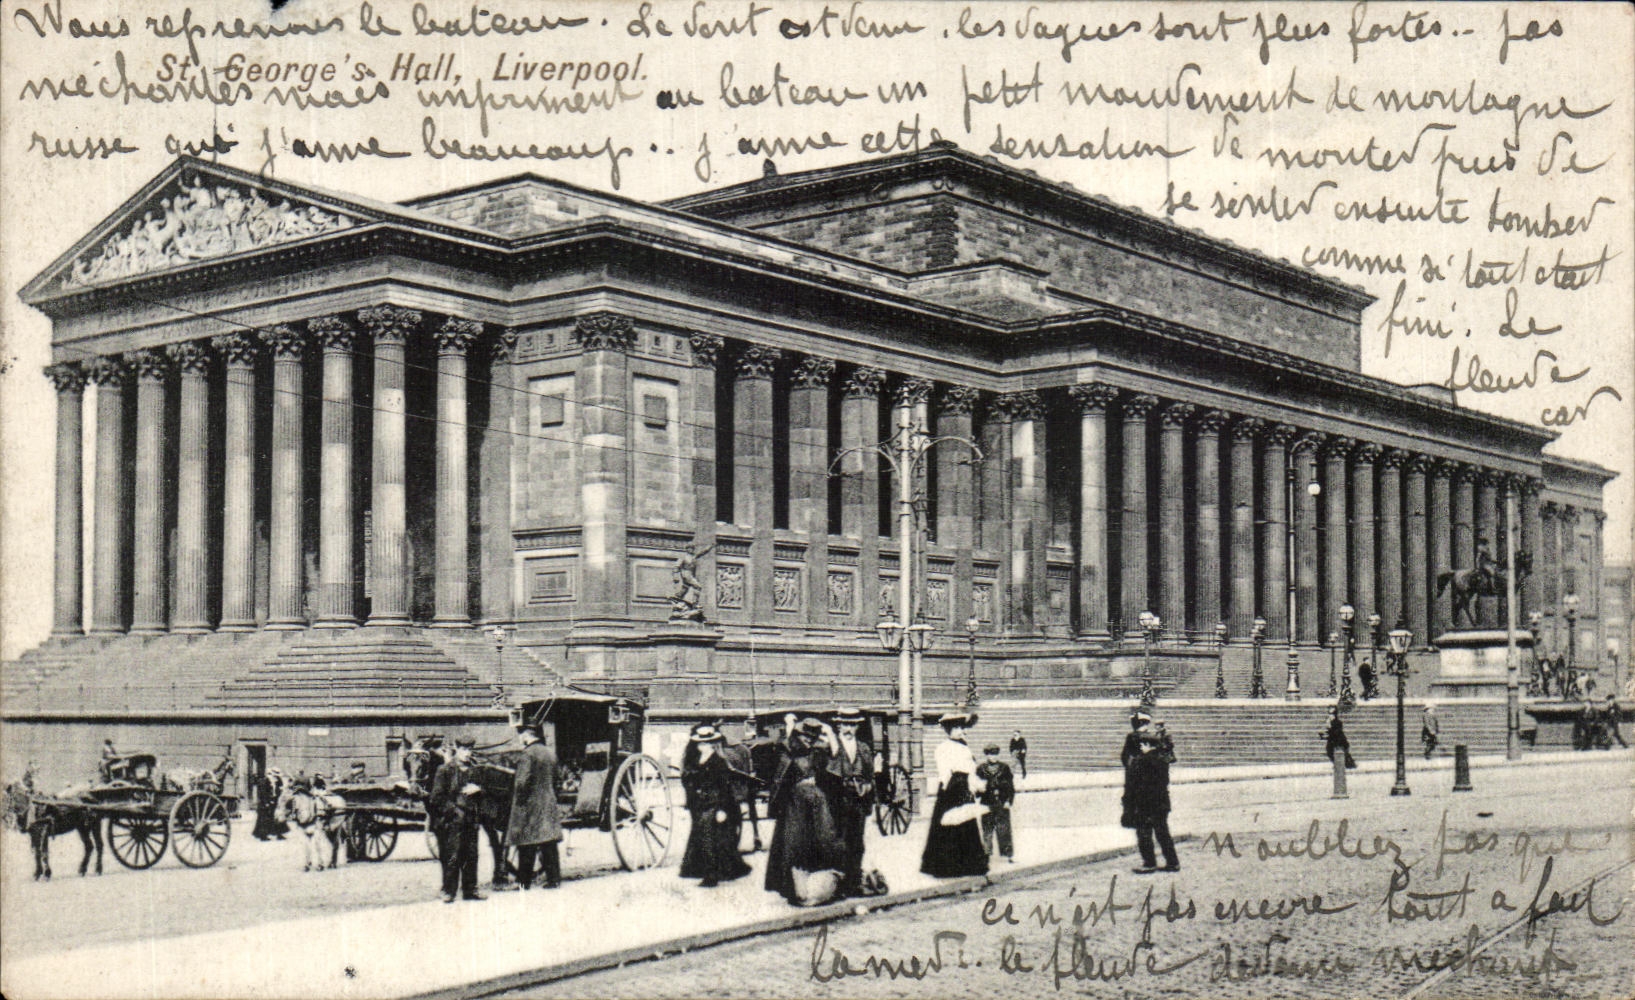 Nous reprenons le bateau. Le vent est venu, les vagues sont plus fortes.. pas
St. George's Hall, Liverpool.
méchantes mais impriment au bateau un petit mouvement de montagne
russe qui j'aime beaucoup.. j'aime cette sensation de monter puis de
se sentir ensuite tomber
comme si tout était
fini. Le
fleuve
car
n'oubliez pas que
ce n'est pas encore tout a fait
la mer.. le fleuve devenu méchant